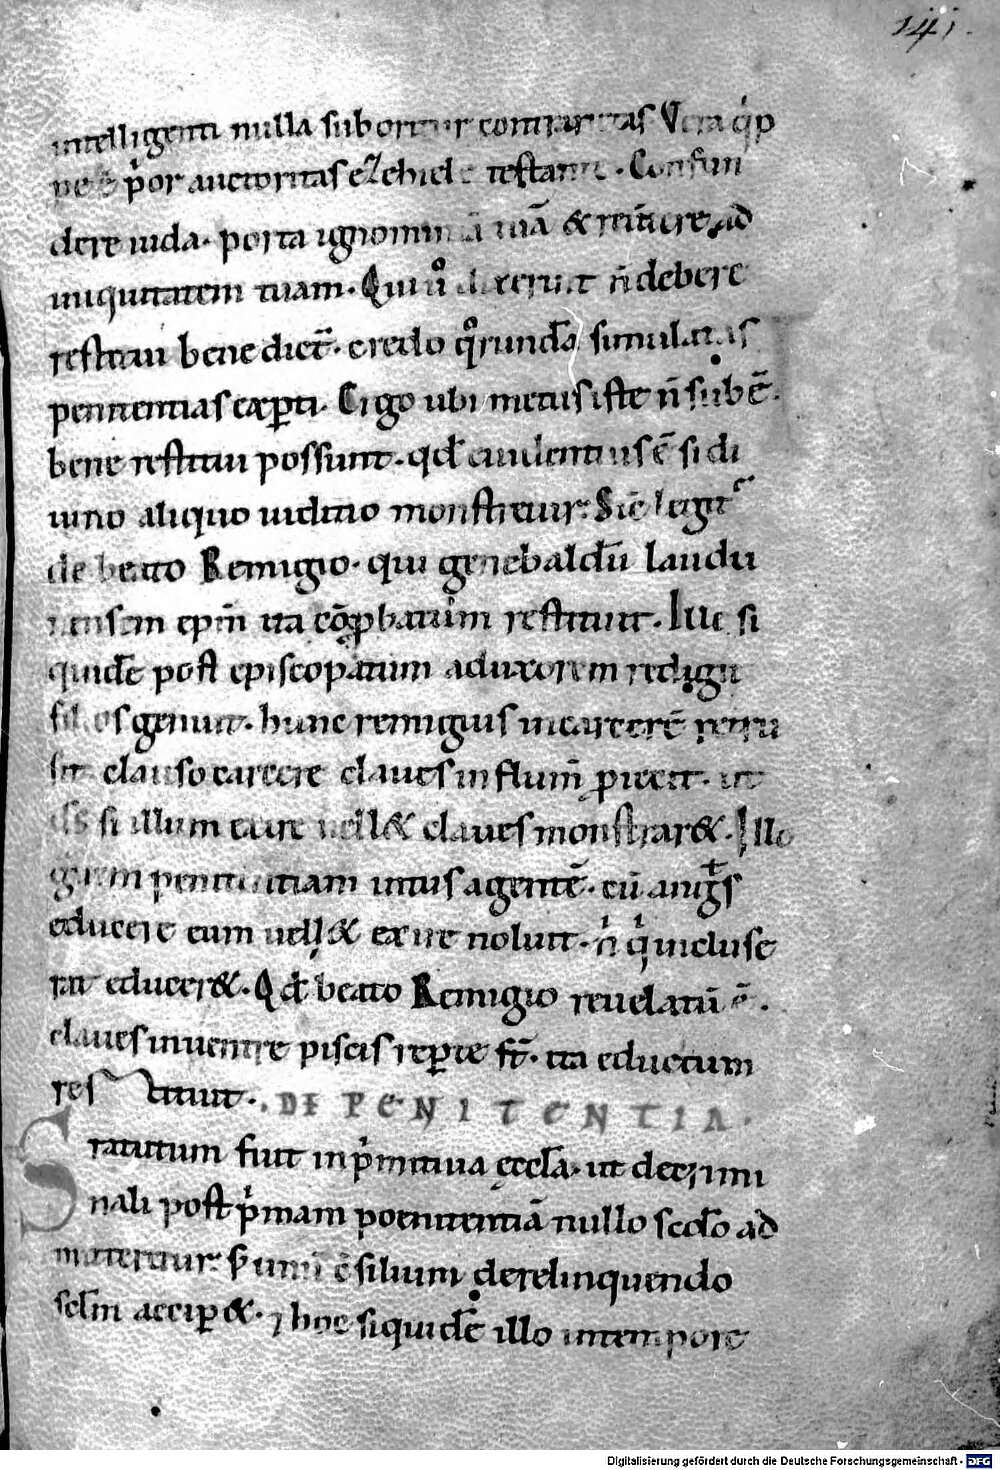 141.
intelligenti nulla suboritur contrarietas Vera q̍p
pe & p̍or auctoritas ezechiele testante. Confun
dere iuda. porta ignominiā tuā & reūtere ad
iniquitatem tuam. Qui u̓ dixerunt n̄ debere
restitui bene dict̄. credo q̊rundā simulatas
penitentias exꝑti. Ergo ubi metus iste n̄ subē.
bene restitui possunt. qđ euidentius ē si di
uino aliquo iuditio monstretur. Sic̄ legit᷑
de beato Remigio. qui genebaldū laudu
nensem epm̄ ita cōꝓbatum restituit. Iuc si
quidē post episcopatum ad uxorem redigit
filios genuit. hunc remigius in carcerē retru
sit clauso carcere claues in flum̄ ꝓiecit. ut
ds̄ si illum exire uell& claues monstrar&. Illo
penitentiam intus agentē. cū angl̄s
educere eum uell& exire noluit. n̍ q̍ incluse
rat educer&. Qđ beato Remigio reuelatū ē.
claues in uentre piscis reꝑte st̄. ita eductum
restituit. DE PENITENTIA.
Statutum fuit in p̍mitiua ęccła. ut de crimi
nali post p̍mam poenitentiā nullo sc̄do ad
mitteretur. s; unū cōsilium derelinquendo
sclm̄ accip&. ⁊ hoc siquidē illo in tempore
Digitalisierung gefördert durch die Deutsche Forschungsgemeinschaft - DFG